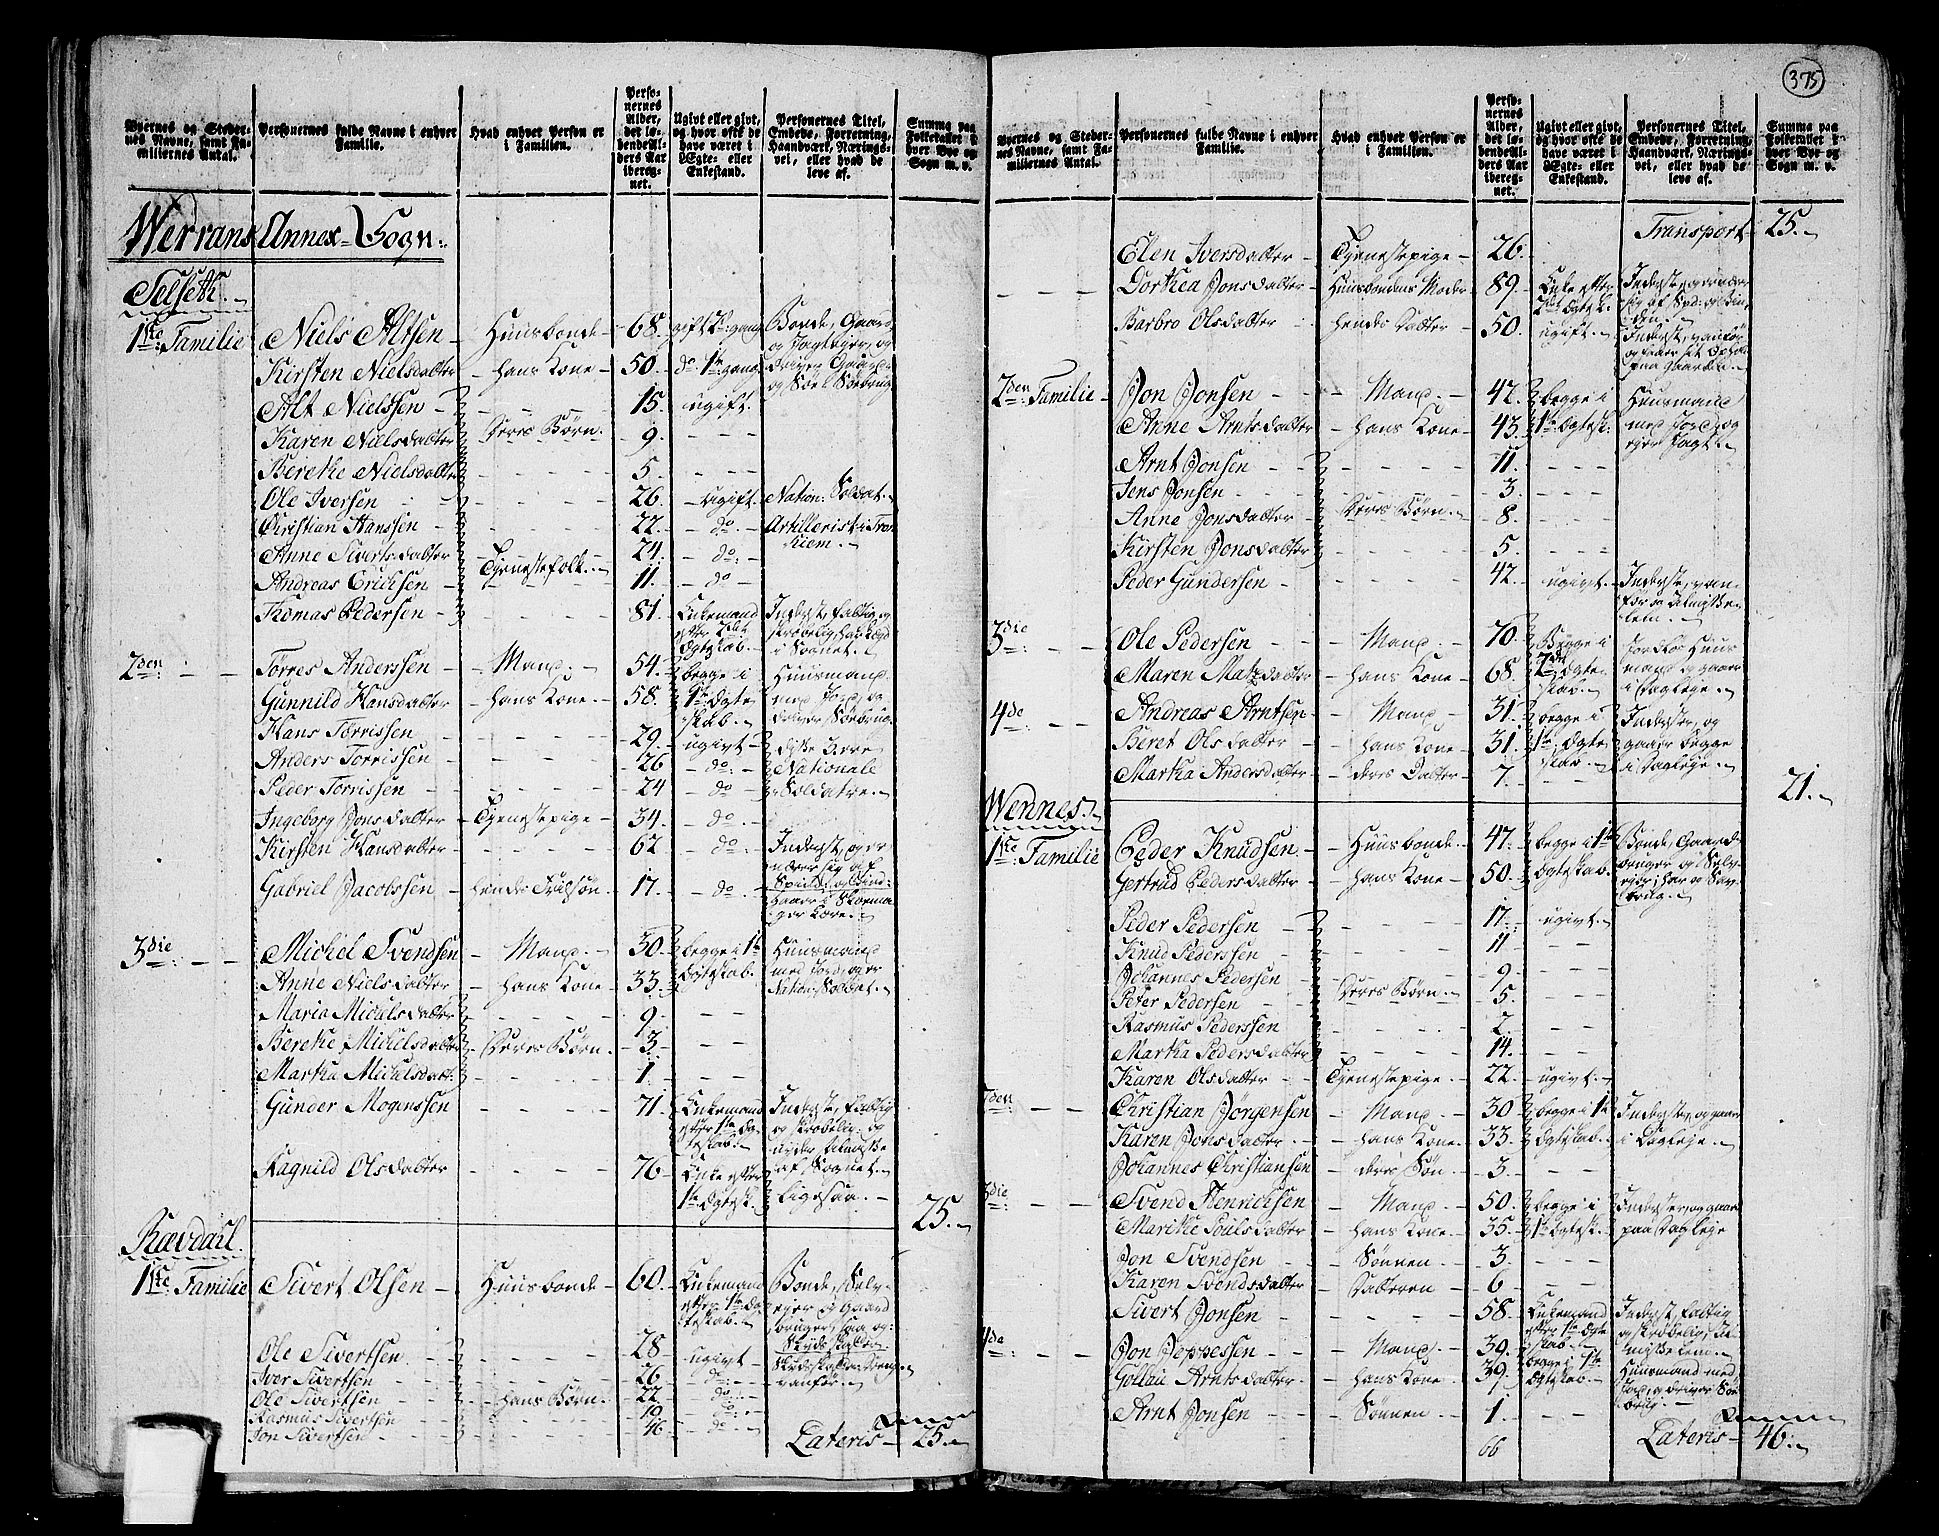 375
Byernes og Stedernes Navne, samt Familiernes Antal.
Personernes fulde Navne i enhver Familie.
Hvad enhver Person er i Familien.
Personernes Alder, det løbende Alders Aar iberegnet.
Ugivt eller givt, og hvor ofte de have været i Ægte- eller Enkestand.
Personernes Titel, Embede, Forretning, Haandværk, Næringsvei, eller hvad de leve af.
Summa paa Folketallet i hver Bye og Sogn m. v.
Werrans Annex-Sogn:
Selseth
1ste Familie Niels Altsen - Huusbonde - 68. gift 2den gang Bonde, Gaard
Kirsten Nielsdatter - hans Kone - 50. do 1ste gang
Alt Nielssen - 15. ugift.
Karen Nielsdatter - Deres Børn. 9.
Berethe Nielsdatter - 5.
Ole Iversen - 26. - Ugift. Nation: Soldat.
Christian Hanssen - 22. - do. Artillerist i Tronhiem.
Anne Sivertsdatter - Tjenestefolk. 24. - do.
Andreas Erichsen - 11. - do
Thomas Pedersen - 81. Enkemand efter 2det Egteskab. Inderst, fattig og skrøbelig, har Lægd i Sognet.
2den: Torres Anderssen - Mand. 54. begge i 1ste Egteskab. Huusmand med Jord, og driver Søebrug.
Gunnild Hansdatter - hans Kone - 58.
Hans Torrissen - 29. ugivt
Anders Torrissen - 26 - do: Nationale
Peder Torrissen - 24 - do Soldatre.
Ingeborg Jonsdatter - Tjenestepige - 34. - do.
Kirsten Hansdatter - 62 - do. Inderst, og ernærer sig af
Gabriel Jacobssen - 17. - do
3die: Michel Svendsen - Mand. 30. begge i 1ste Egteskab. Huusmand med Jord, og er Nation: Soldat.
Anne Nielsdatter - hans Kone - 33.
Maria Michelsdatter - 9
Berethe Michelsdatter - Deres Børn. 3.
Martha Michelsdatt: - 1.
Gunder Mogenssen - 71. Enkemand efter 1ste Egteskab. Inderst, fattig og skrøbelig, og nyder Almisse af Sognet.
Ragnild Olsdatter - 76 - Enke efter 1ste Egtesk. Ligesaa.
25.
Rævdahl.
1ste Familie Sivert Olsen - Huusbonde - 60. Enkemand efter 1ste Egteskab. Bonde, Selveier og Gaardbruger, saa og:
Ole Sivertsen - 28 ugivt
Iver Sivertsen - 26 do:
Ole Sivertsen - hans Børn. 22 do: vanfør.
Rasmus Sivertsen - 19 do:
Jon Sivertsen - 16 do
Lateris - 25.
Byernes og Stedernes Navne, samt Familiernes Antal.
Personernes fulde Navne i enhver Familie.
Hvad enhver Person er i Familien.
Personernes Alder, det løbende Alders Aar iberegnet.
Ugivt eller givt, og hvor ofte de have været i Ægte- eller Enkestand.
Personernes Titel, Embede, Forretning, Haandværk, Næringsvei, eller hvad de leve af.
Summa paa Folketallet i hver Bye og Sogn m. v.
Transport - 25.
Elen Iversdatter - Tjenestepige - 26.
Dorthea Jonsdatter - Huusbondens Moder 89. Enke efter 2det Egtesk.
Barbro Olsdatter - hendes Datter - 50. ugift.
2den: Familie Jon Jonsen - Mand. 42. begge i 1ste Egtesk. Huusmand med Jord, og
Anne Arntsdatter - hans Kone - 43.
Arnt Jonsen - 11.
Jens Jonsen - 3.
Anne Jonsdatter - Deres Børn. 8.
Kirsten Jonsdatter - 5.
Peder Gundersen - 42. ugivt. Inderst, vanfør og Almisselem.
3die: Ole Pedersen - Mand. 70. Begge i 2det Egteskab. Jordløs Huusmand og gaaer i Dagleye.
Maren Matzdatter - hans Kone - 68.
4de: Andreas Arntsen - Mand. 31. begge i 1ste Egteskab. Inderster, og gaaer begge i Dagleye.
Beret Olsdatter - hans Kone - 31.
Martha Andersdatter - deres Datter - 7.
21.
Wennes.
1ste: Familie Peder Knudsen - Huusbonde. 47. begge i 1ste Egteskab. Bonde, Gaardbruger og Selveier,
Gertrud Pedersdatter - hans Kone - 50.
Peder Pedersen - 17. ugivt.
Knud Pederssen - 11
Johannes Pedersen - 9.
Peter Pedersen - Deres Børn. 5.
Rasmus Pederssen - 2.
Martha Pedersdatter - 14.
Karen Olsdatter - Tjenestepige. 22. ugivt.
2den Christian Jørgensen - Mand. 30 begge i 1ste Egteskab. Inderster, og gaaer i Dagleye.
Karen Jonsdatter. - hans Kone - 33.
Johannes Christiansen - deres Søn - 3.
3die: Svend Henrichsen - Mand. 50. begge i 1ste Egtesk. Inderster, og gaaer paa Dagleye
Marithe Povlsdatter - hans Kone - 35.
Jon Svendsen - Sønnen - 3.
Karen Svendsdatter - Datteren - 6.
Sivert Jonsen - 58. Enkemand efter 1ste Egteskab. Inderst, fattig og skrøbelig, Almisselem.
4de Jon Jeppessen - Mand. 39. begge i 1ste Egteskab. Huusmand med Jord, og driver Søebrug.
Gollau Arntsdatter - hans Kone - 39.
Arnt Jonsen - Sønnen. 1.
66
Lateris - 46.